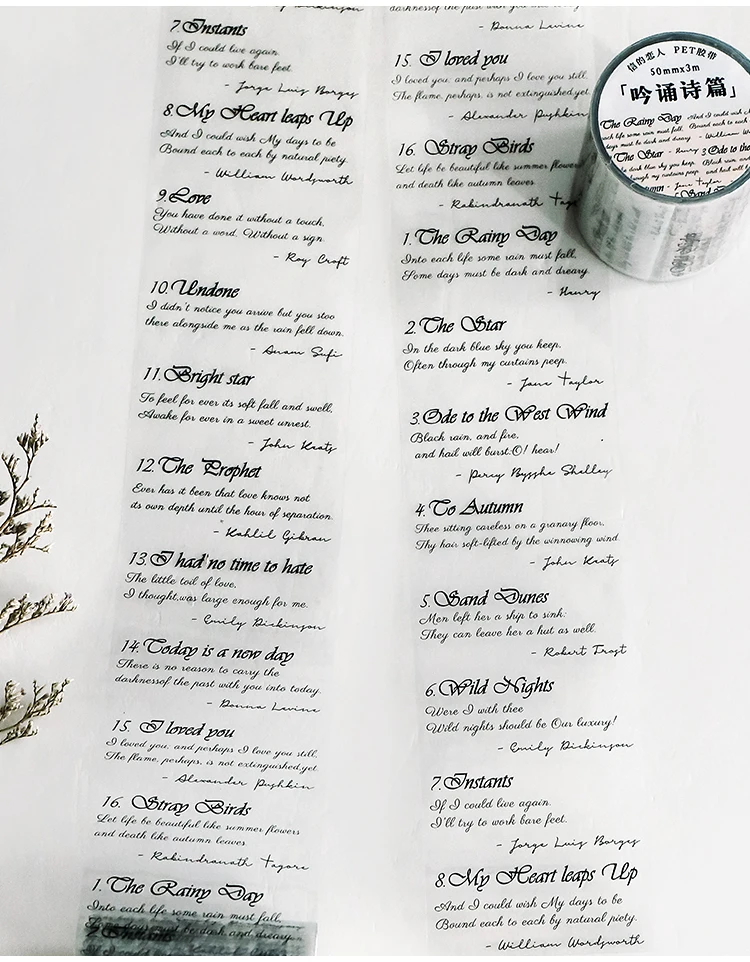 7.Instants
If I could live again.
I'll try to work bare feet.
- Jorge Luis Borges
8.My Heart leaps Up
And I could wish My days to be
Bound each to each by natural piety.
- William Wordsworth
9.Love
You have done it without a touch,
Without a word. Without a sign.
- Roy Croft
10.Undone
I didn't notice you arrive but you stoo
there alongside me as the rain fell down.
- Sufi
11.Bright star
To feel for ever its soft fall and swell,
Awake for ever in a sweet unrest.
- John Keats
12.The Prophet
Ever has it been that love knows not
its own depth until the hour of separation.
- Kahlil Gibran
13.I had no time to hate
The little toil of love,
I thought,was large enough for me.
- Emily Dickinson
14.Today is a new day
There is no reason to carry the
darknessof the past with you into today.
- Donna Levine
15. I loved you
I loved you, and perhaps I love you still,
The flame, perhaps, is not extinguished,yet
- Alexander Pushkin
16. Stray Birds
Let life be beautiful like summer flowers
and death like autumn leaves
- Rabindranath Tagore
1.The Rainy Day
Into each life some rain must fall,
Some days must be dark and dreary.
darknessof the past with you into
- Donna Levine
15. I loved you
I loved you, and perhaps I love you still,
The flame, perhaps, is not extinguished,yet
- Alexander Pushkin
16. Stray Birds
Let life be beautiful like summer flowers
and death like autumn leaves
- Rabindranath Tago
1.The Rainy Day
Into each life some rain must fall,
Some days must be dark and dreary.
- Henry
2.The Star
In the dark blue sky you keep,
Often through my curtains peep.
- Jane Taylor
3.Ode to the West Wind
Black rain, and fire,
and hail will burst:O! hear!
- Percy Bysshe Shelley
4.To Autumn
Thee sitting careless on a granary floor,
Thy hair soft-lifted by the winnowing wind.
- John Keats
5.Sand Dunes
Men left her a ship to sink:
They can leave her a hut as well.
- Robert Frost
6.Wild Nights
Were I with thee
Wild nights should be Our luxury!
- Emily Dickinson
7.Instants
If I could live again.
I'll try to work bare feet.
- Jorge Luis Borges
8.My Heart leaps Up
And I could wish My days to be
Bound each to each by natural piety.
- William Wordsworth
信的恋人 PET胶带
50mmx3m
「吟诵诗篇」
The Rainy Day
The Star
3.Ode to the